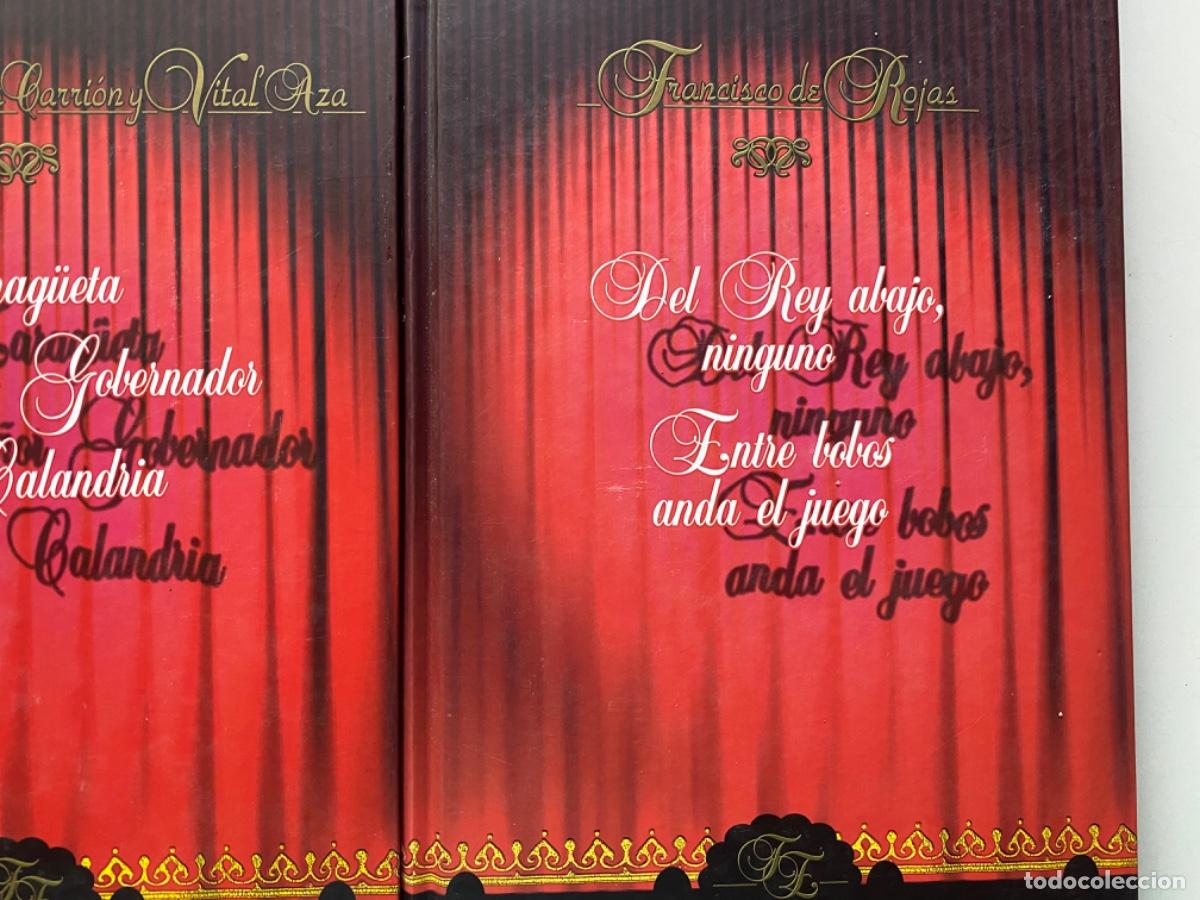 Carrión y Vital Aza
Gobernador
Calandria
Francisco de Rojas
Del Rey abajo,
ninguno
Entre bobos
anda el juego
FE
todocoleccion